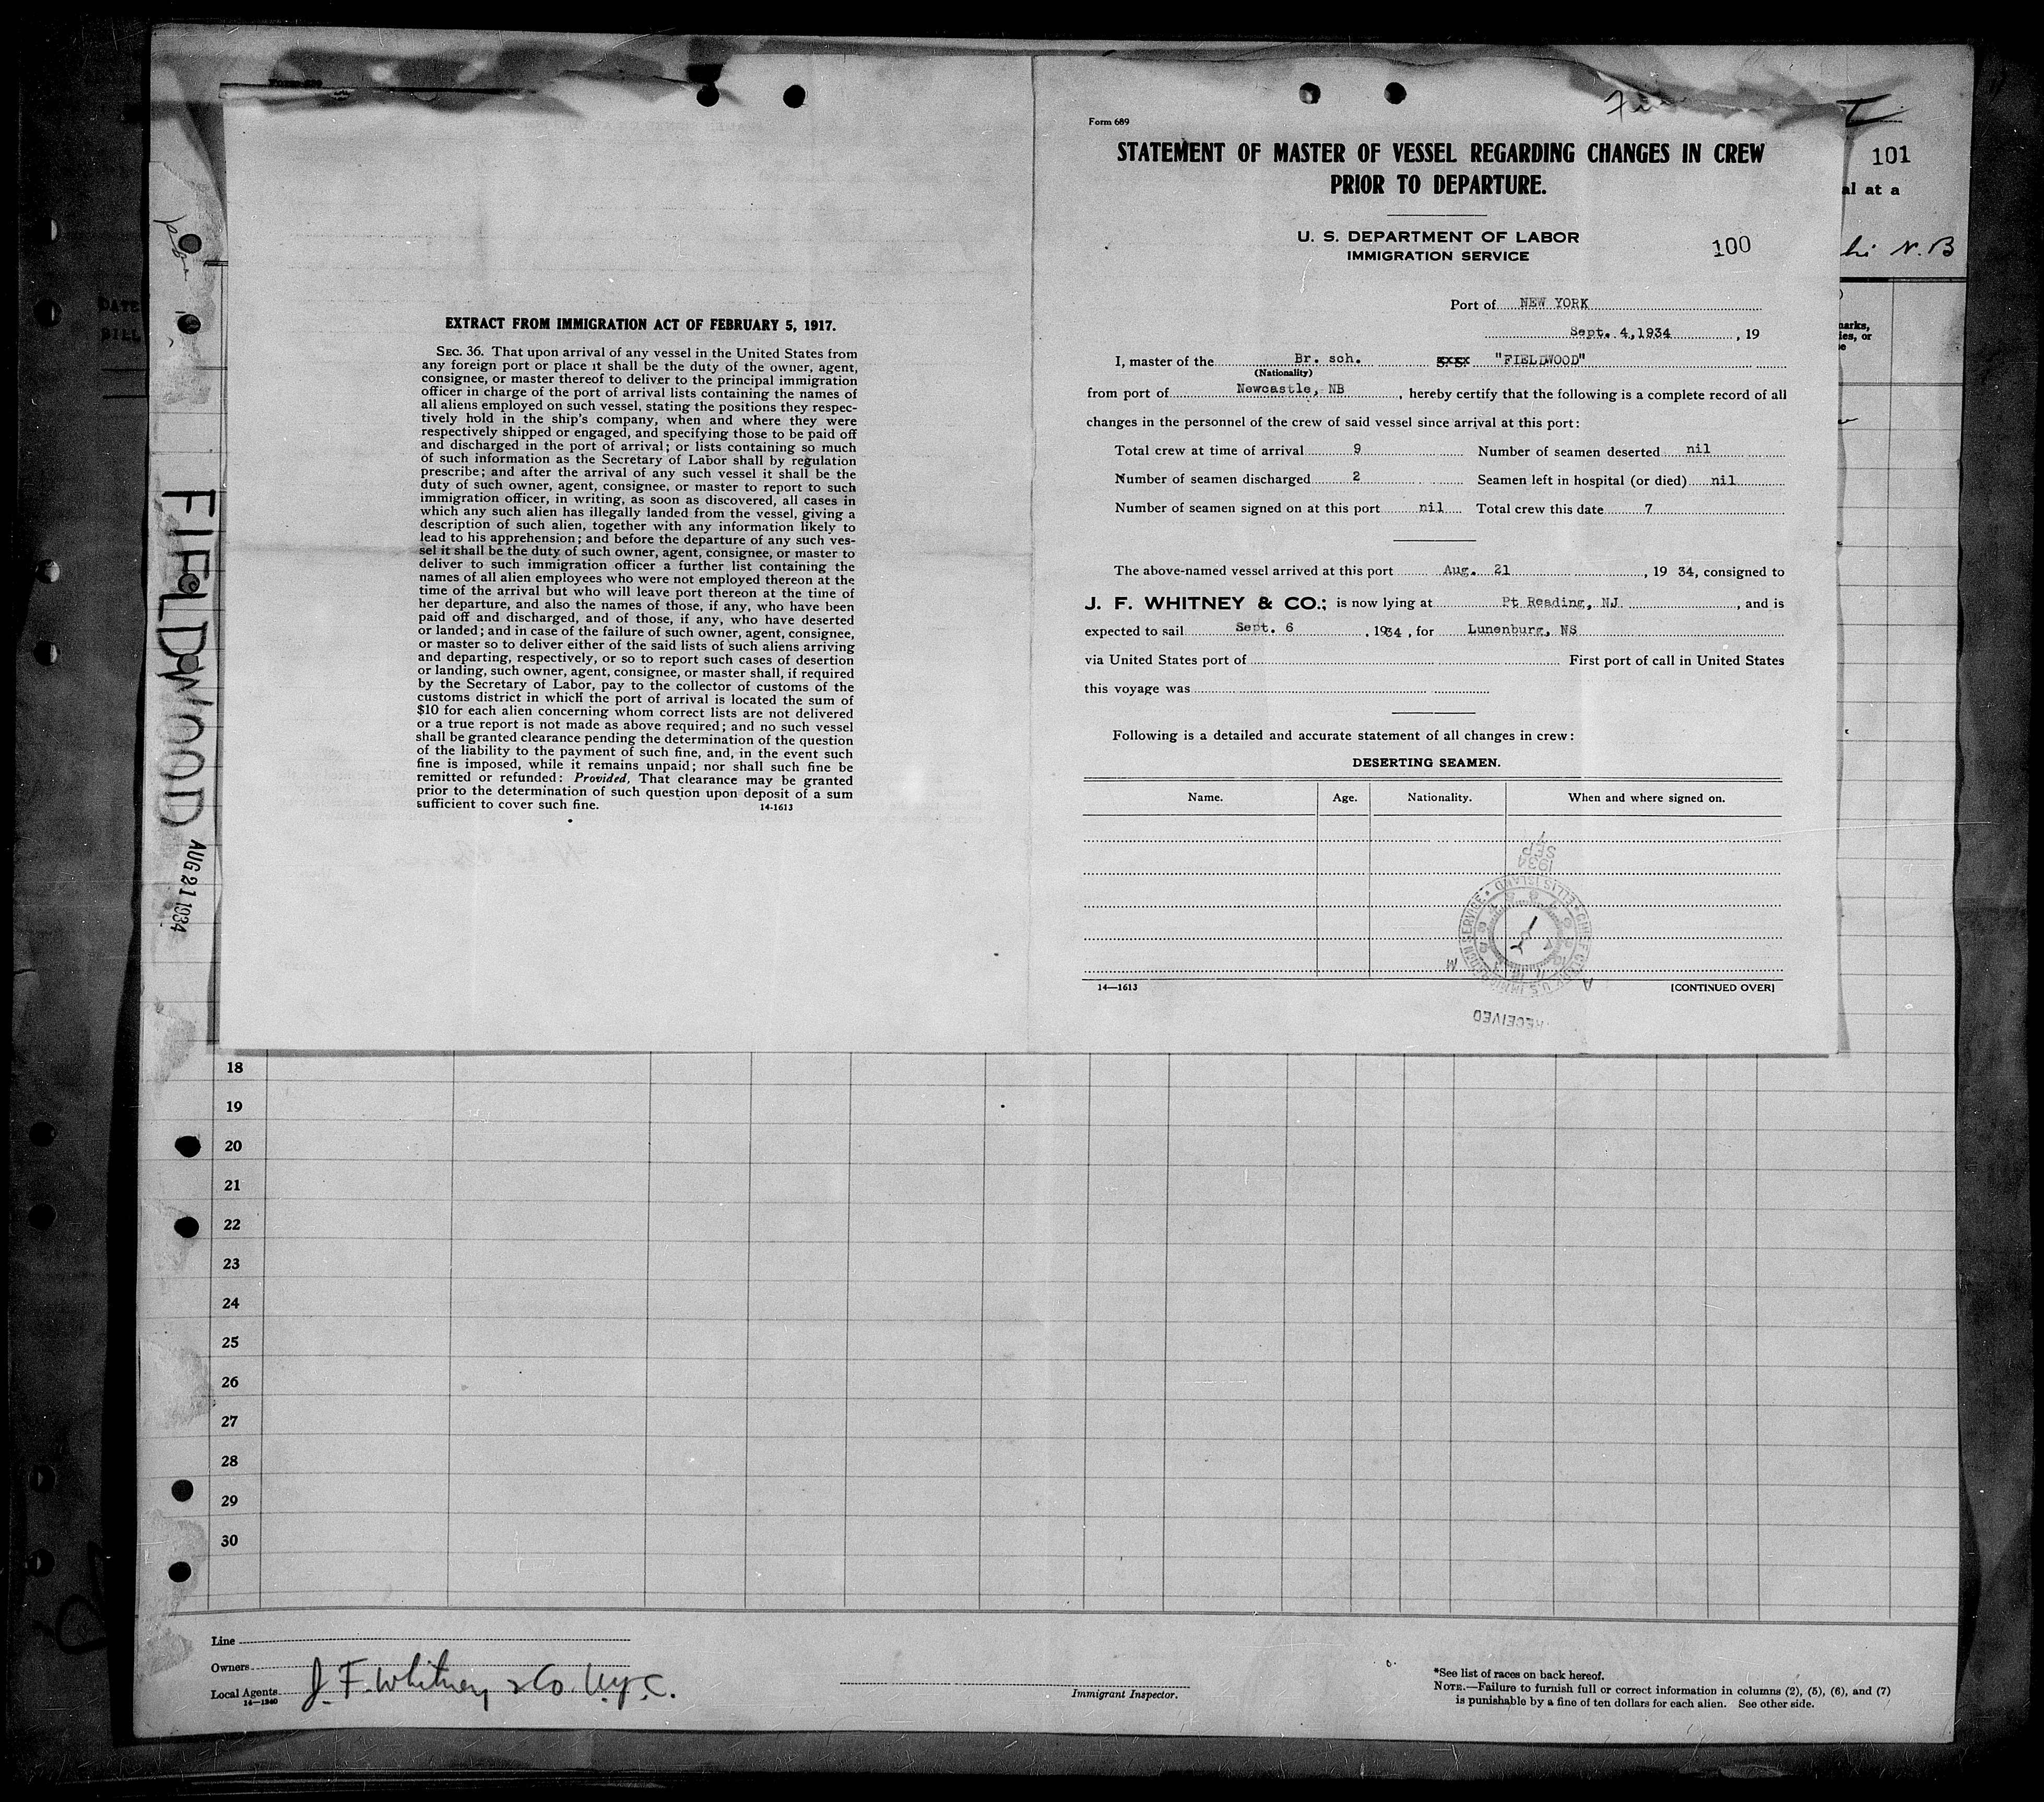 EXTRACT FROM IMMIGRATION ACT OF FEBRUARY 5, 1917.
SEC. 36. That upon arrival of any vessel in the United States from
any foreign port or place it shall be the duty of the owner, agent,
consignee, or master thereof to deliver to the principal immigration
officer in charge of the port of arrival lists containing the names of
all aliens employed on such vessel, stating the positions they respec-
tively hold in the ship's company, when and where they were
respectively shipped or engaged, and specifying those to be paid off
and discharged in the port of arrival; or lists containing so much
of such information as the Secretary of Labor shall by regulation
prescribe; and after the arrival of any such vessel it shall be the
duty of such owner, agent, consignee, or master to report to such
immigration officer, in writing, as soon as discovered, all cases in
which any such alien has illegally landed from the vessel, giving a
description of such alien, together with any information likely to
lead to his apprehension; and before the departure of any such ves-
sel it shall be the duty of such owner, agent, consignee, or master to
deliver to such immigration officer a further list containing the
names of all alien employees who were not employed thereon at the
time of the arrival but who will leave port thereon at the time of
her departure, and also the names of those, if any, who have been
paid off and discharged, and of those, if any, who have deserted
or landed; and in case of the failure of such owner, agent, consignee,
or master so to deliver either of the said lists of such aliens arriving
and departing, respectively, or so to report such cases of desertion
or landing, such owner, agent, consignee, or master shall, if required
by the Secretary of Labor, pay to the collector of customs of the
customs district in which the port of arrival is located the sum of
$10 for each alien concerning whom correct lists are not delivered
or a true report is not made as above required; and no such vessel
shall be granted clearance pending the determination of the question
of the liability to the payment of such fine, and, in the event such
fine is imposed, while it remains unpaid; nor shall such fine be
remitted or refunded: Provided, That clearance may be granted
prior to the determination of such question upon deposit of a sum
sufficient to cover such fine. 14-1613
Form 689
STATEMENT OF MASTER OF VESSEL REGARDING CHANGES IN CREW
PRIOR TO DEPARTURE.
U. S. DEPARTMENT OF LABOR
IMMIGRATION SERVICE
100
Port of NEW YORK
Sept. 4, 1934, 19
I, master of the Br. sch. "FIELDWOOD"
(Nationality)
from port of Newcastle, NB, hereby certify that the following is a complete record of all
changes in the personnel of the crew of said vessel since arrival at this port:
Total crew at time of arrival 9 Number of seamen deserted nil
Number of seamen discharged 2 Seamen left in hospital (or died) nil
Number of seamen signed on at this port nil Total crew this date 7
The above-named vessel arrived at this port Aug. 21, 1934, consigned to
J. F. WHITNEY & CO.; is now lying at Pt Reading, NJ, and is
expected to sail Sept. 6, 1934, for Lunenburg, NS
via United States port of First port of call in United States
this voyage was
Following is a detailed and accurate statement of all changes in crew:
DESERTING SEAMEN.
Name. Age. Nationality. When and where signed on.
1934
SEP
CHIEF CLERK U.S. IMMIGRATION SERVICE ELLIS ISLAND
A M
RECEIVED
14—1613 [CONTINUED OVER]
101
al at a
hi N.B
FIELDWOOD
AUG 21 1934
DATE
BILL
18
19
20
21
22
23
24
25
26
27
28
29
30
Line
Owners
Local Agents J. F. Whitney & Co. N.Y.C.
14—1240
Immigrant Inspector.
*See list of races on back hereof.
NOTE.—Failure to furnish full or correct information in columns (2), (5), (6), and (7)
is punishable by a fine of ten dollars for each alien. See other side.